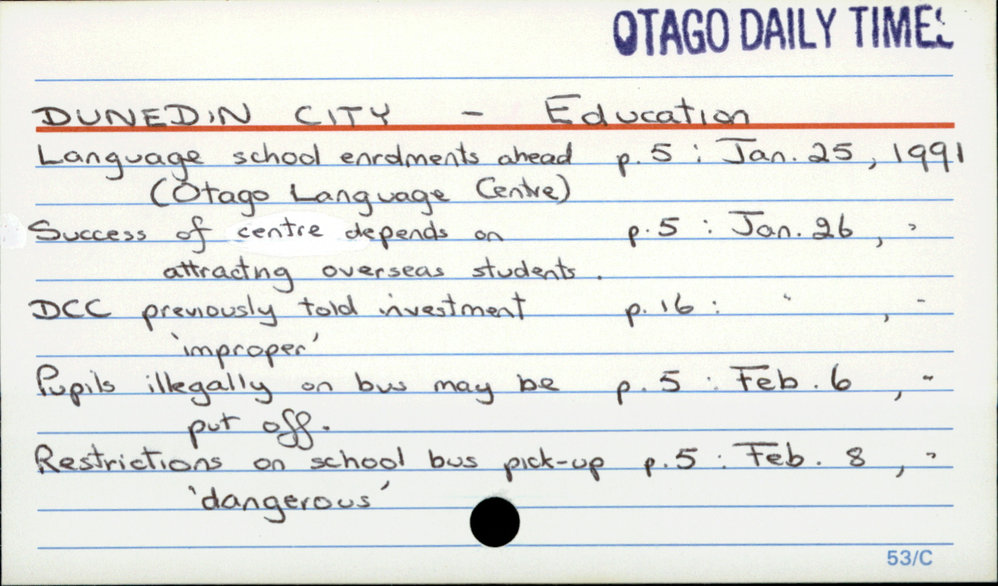 OTAGO DAILY TIMES
DUNEDIN CITY - Education
Language school enrolments ahead p. 5 : Jan. 25, 1991
(Otago Language Centre)
Success of centre depends on p. 5 : Jan. 26, "
attracting overseas students.
DCC previously told investment p. 16 : " , "
'improper'
Pupils illegally on bus may be p. 5 : Feb. 6, "
put off.
Restrictions on school bus pick-up p. 5 : Feb. 8, "
'dangerous'
53/C